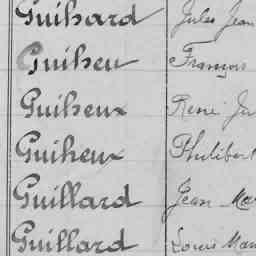 Guihard Jules Jean
Guiheu François
Guiheux René
Guiheux Philibert
Guillard Jean
Guillard Louis